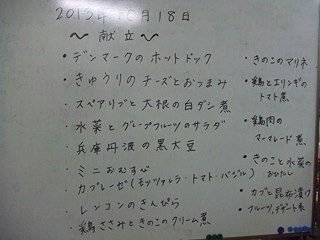 2013年10月18日
〜献立〜
・デンマークのホットドック
・きゅうりのチーズとおつまみ
・スペアリブと大根の白ダシ煮
・水菜とグレープフルーツのサラダ
・兵庫丹波の黒大豆
・ミニおむすび
・カプレーゼ(モッツァレラ・トマト・バジル)
・レンコンのきんぴら
・鶏ささみときのこのクリーム煮
・きのこのマリネ
・鶏とエリンギの
トマト煮
・鶏肉の
マーマレード煮
・きのこと水菜の
おひたし
・カブと昆布漬け
・フルーツ、デザート系